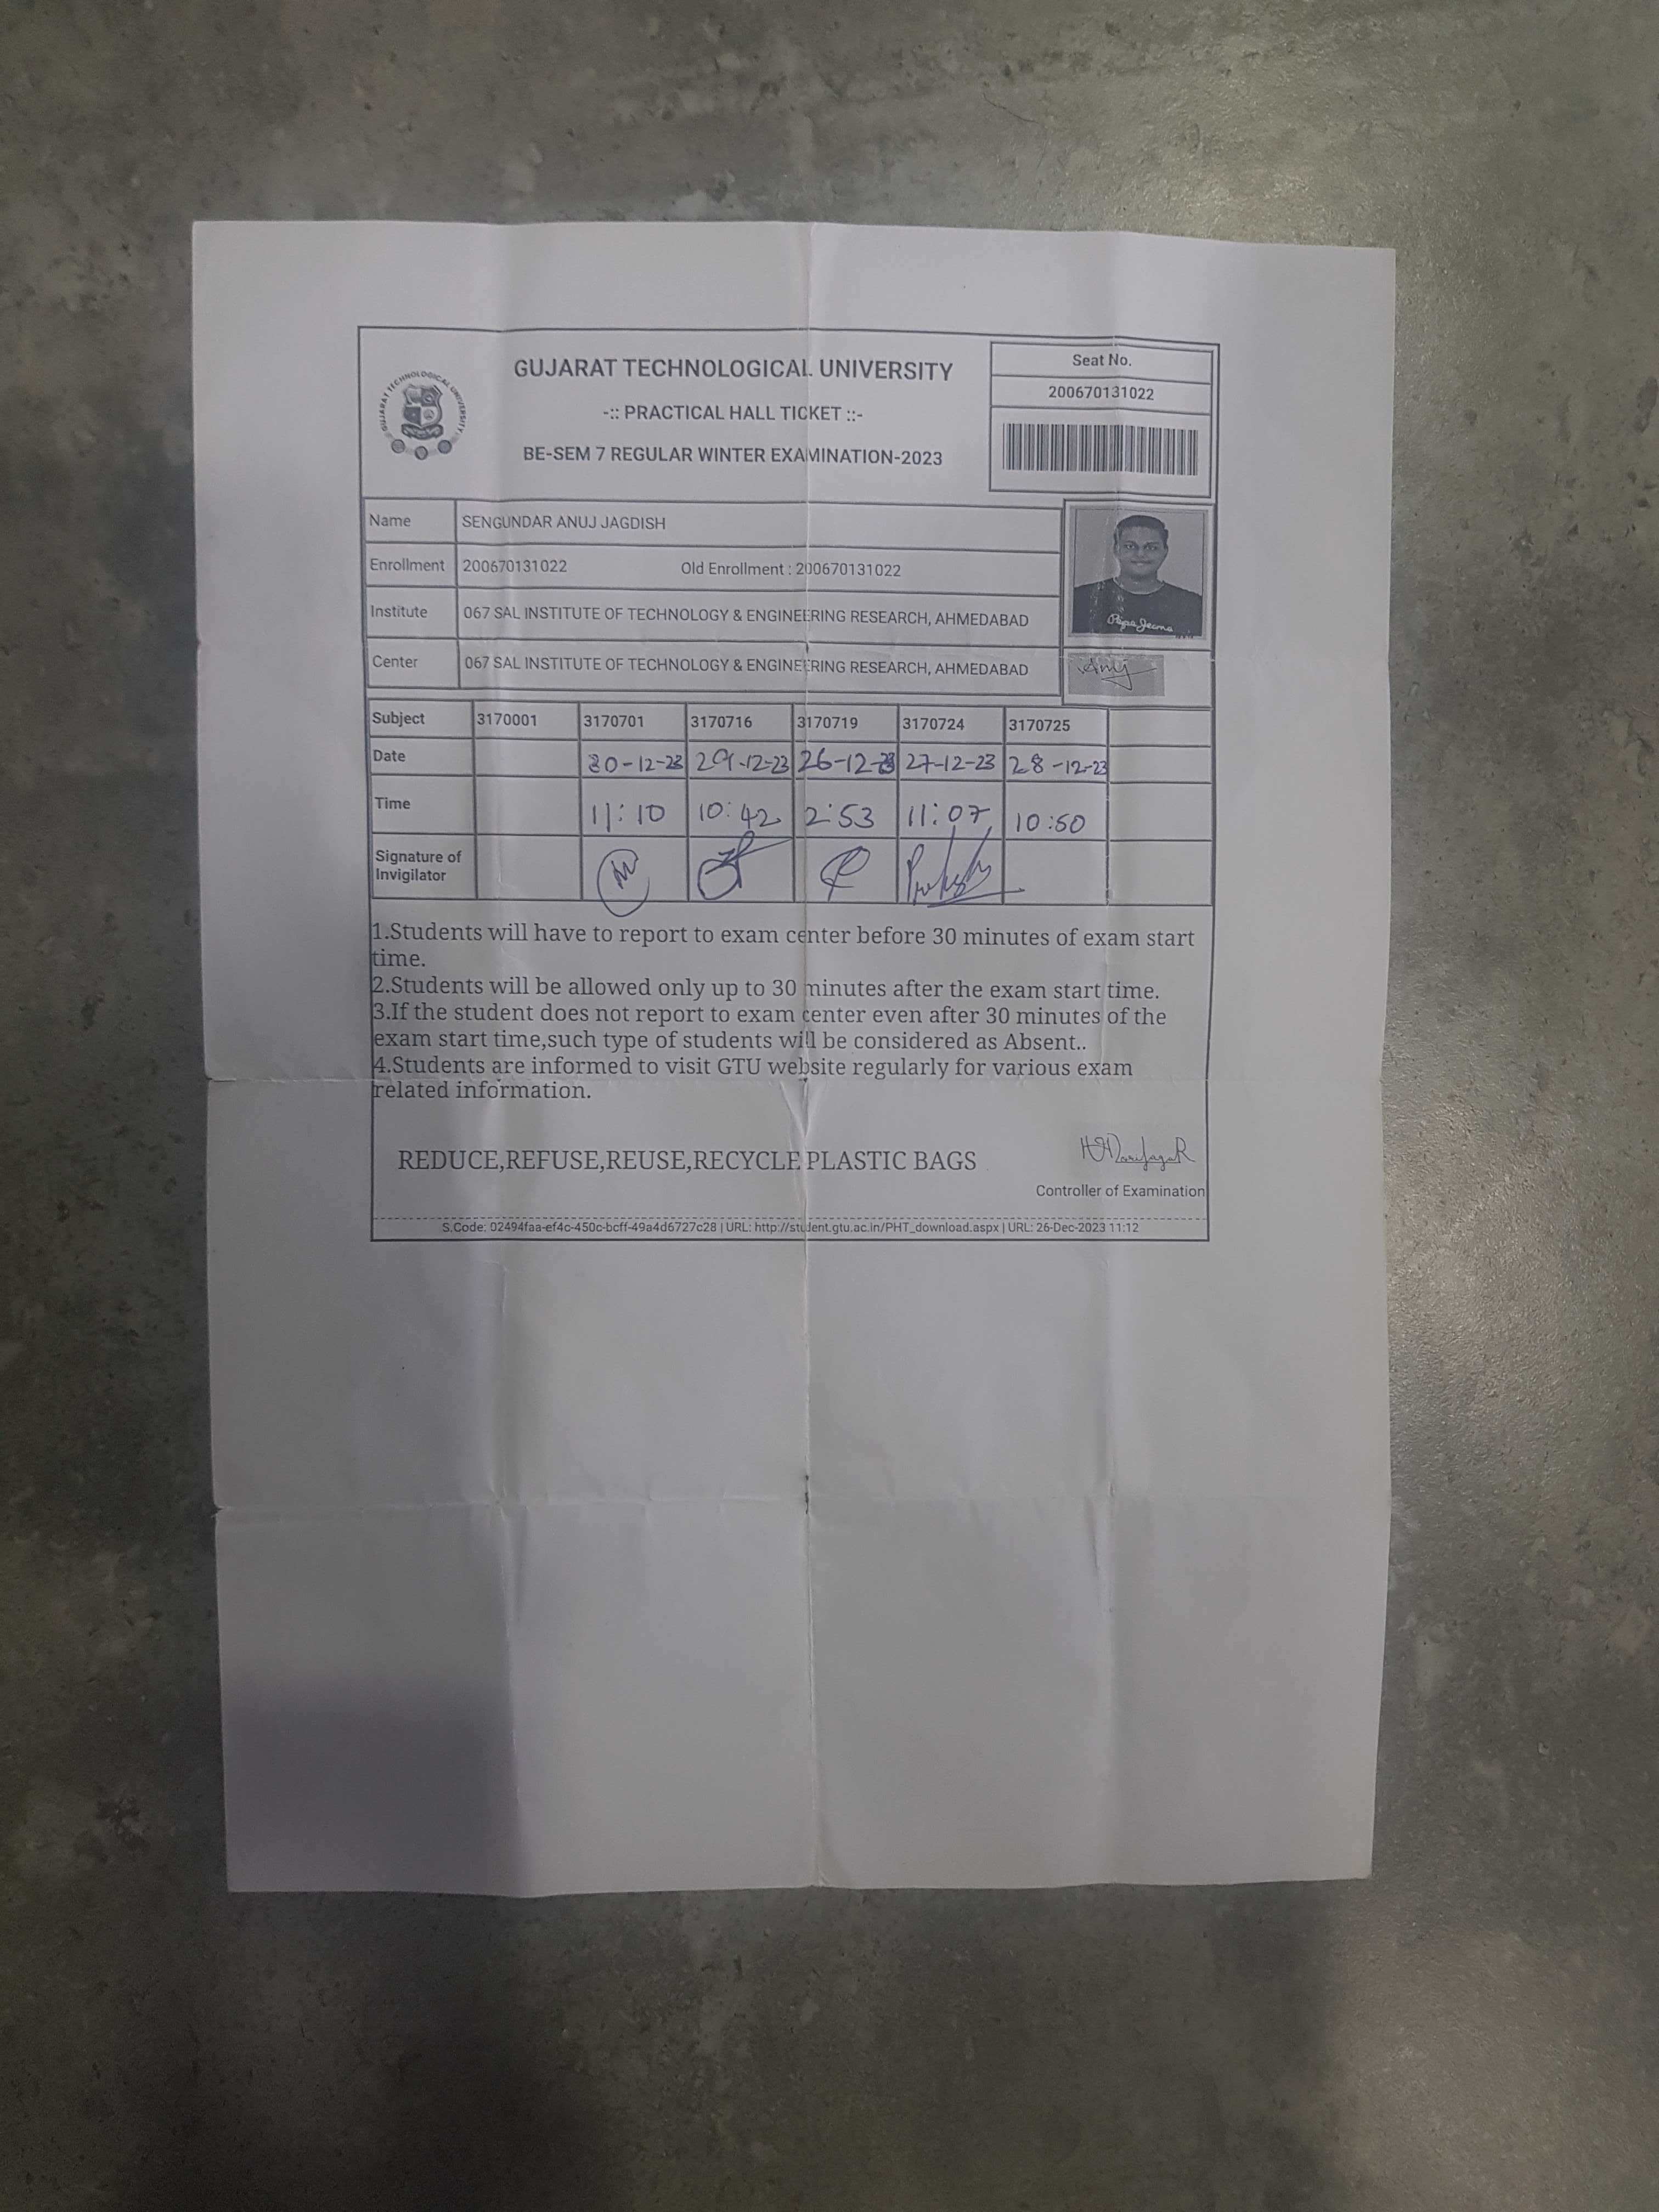 GUJARAT TECHNOLOGICAL UNIVERSITY
-:: PRACTICAL HALL TICKET ::-
BE-SEM 7 REGULAR WINTER EXAMINATION-2023
Seat No.
200670131022
GUJARAT TECHNOLOGICAL UNIVERSITY
Name SENGUNDAR ANUJ JAGDISH
Enrollment 200670131022 Old Enrollment : 200670131022
Institute 067 SAL INSTITUTE OF TECHNOLOGY & ENGINEERING RESEARCH, AHMEDABAD
Center 067 SAL INSTITUTE OF TECHNOLOGY & ENGINEERING RESEARCH, AHMEDABAD
Pepe Jeans
Anuj
Subject 3170001 3170701 3170716 3170719 3170724 3170725
Date 30-12-23 29-12-23 26-12-23 27-12-23 28-12-23
Time 11:10 10:42 2:53 11:07 10:50
Signature of
Invigilator
1.Students will have to report to exam center before 30 minutes of exam start
time.
2.Students will be allowed only up to 30 minutes after the exam start time.
3.If the student does not report to exam center even after 30 minutes of the
exam start time,such type of students will be considered as Absent..
4.Students are informed to visit GTU website regularly for various exam
related information.
REDUCE,REFUSE,REUSE,RECYCLE PLASTIC BAGS
Controller of Examination
S.Code: 02494faa-ef4c-450c-bcff-49a4d6727c28 | URL: http://student.gtu.ac.in/PHT_download.aspx | URL: 26-Dec-2023 11:12